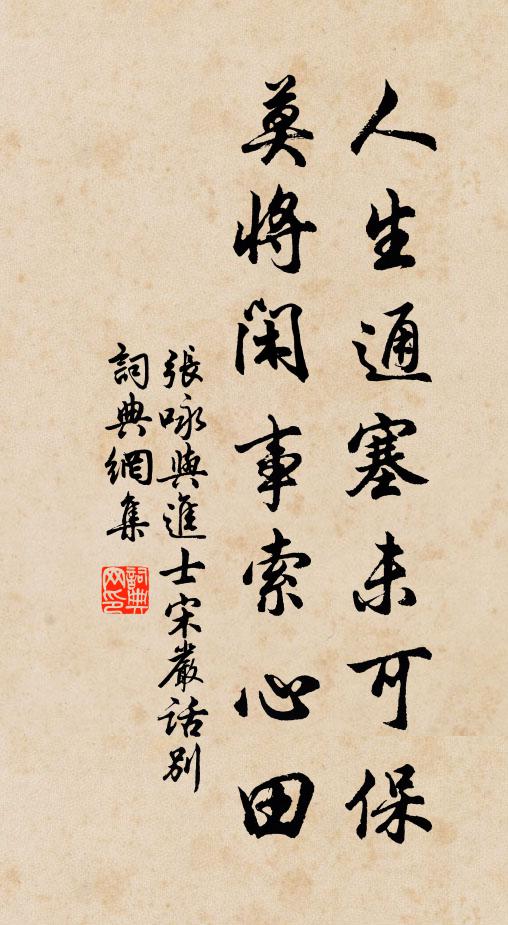 人生通塞未可保
莫將閑事索心田
張咏與進士宋嚴話別
詞典網集
詞典网印